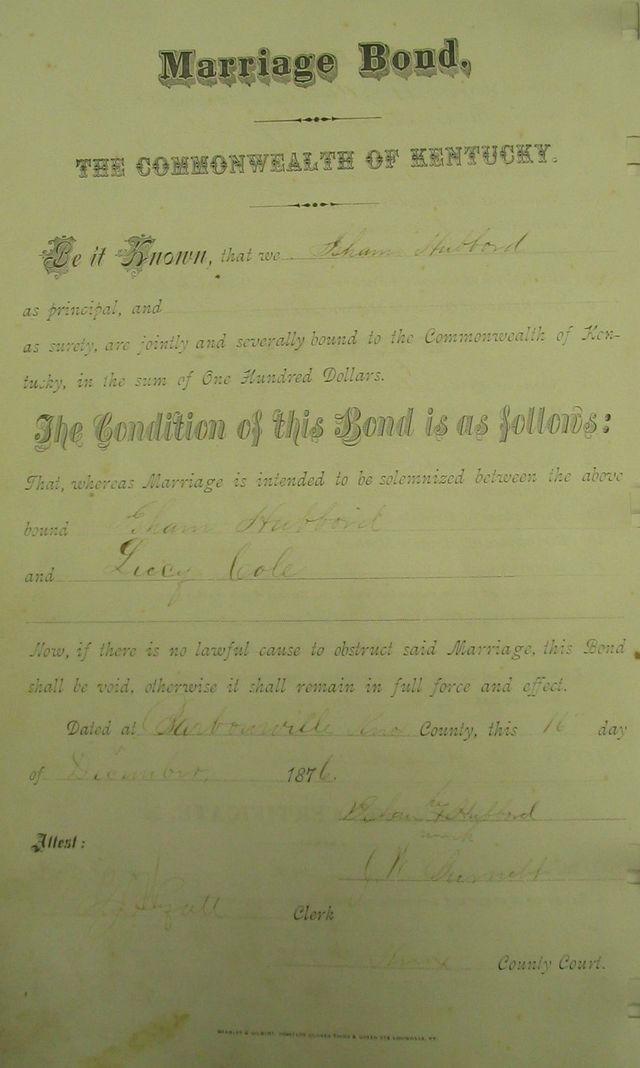 Marriage Bond.
THE COMMONWEALTH OF KENTUCKY.
Be it Known, that we Isham Hubbord
as principal, and
as surety, are jointly and severally bound to the Commonwealth of Ken-
tucky, in the sum of One Hundred Dollars.
The Condition of this Bond is as follows:
That, whereas Marriage is intended to be solemnized between the above
bound Hubbord
and Lucy Cole
Now, if there is no lawful cause to obstruct said Marriage, this Bond
shall be void, otherwise it shall remain in full force and effect.
Dated at Barbourville Knox County, this 16 day
of December 1876.
Isham his x Hubbord
mark
Attest:
J W Burnett
Clerk
Knox County Court.